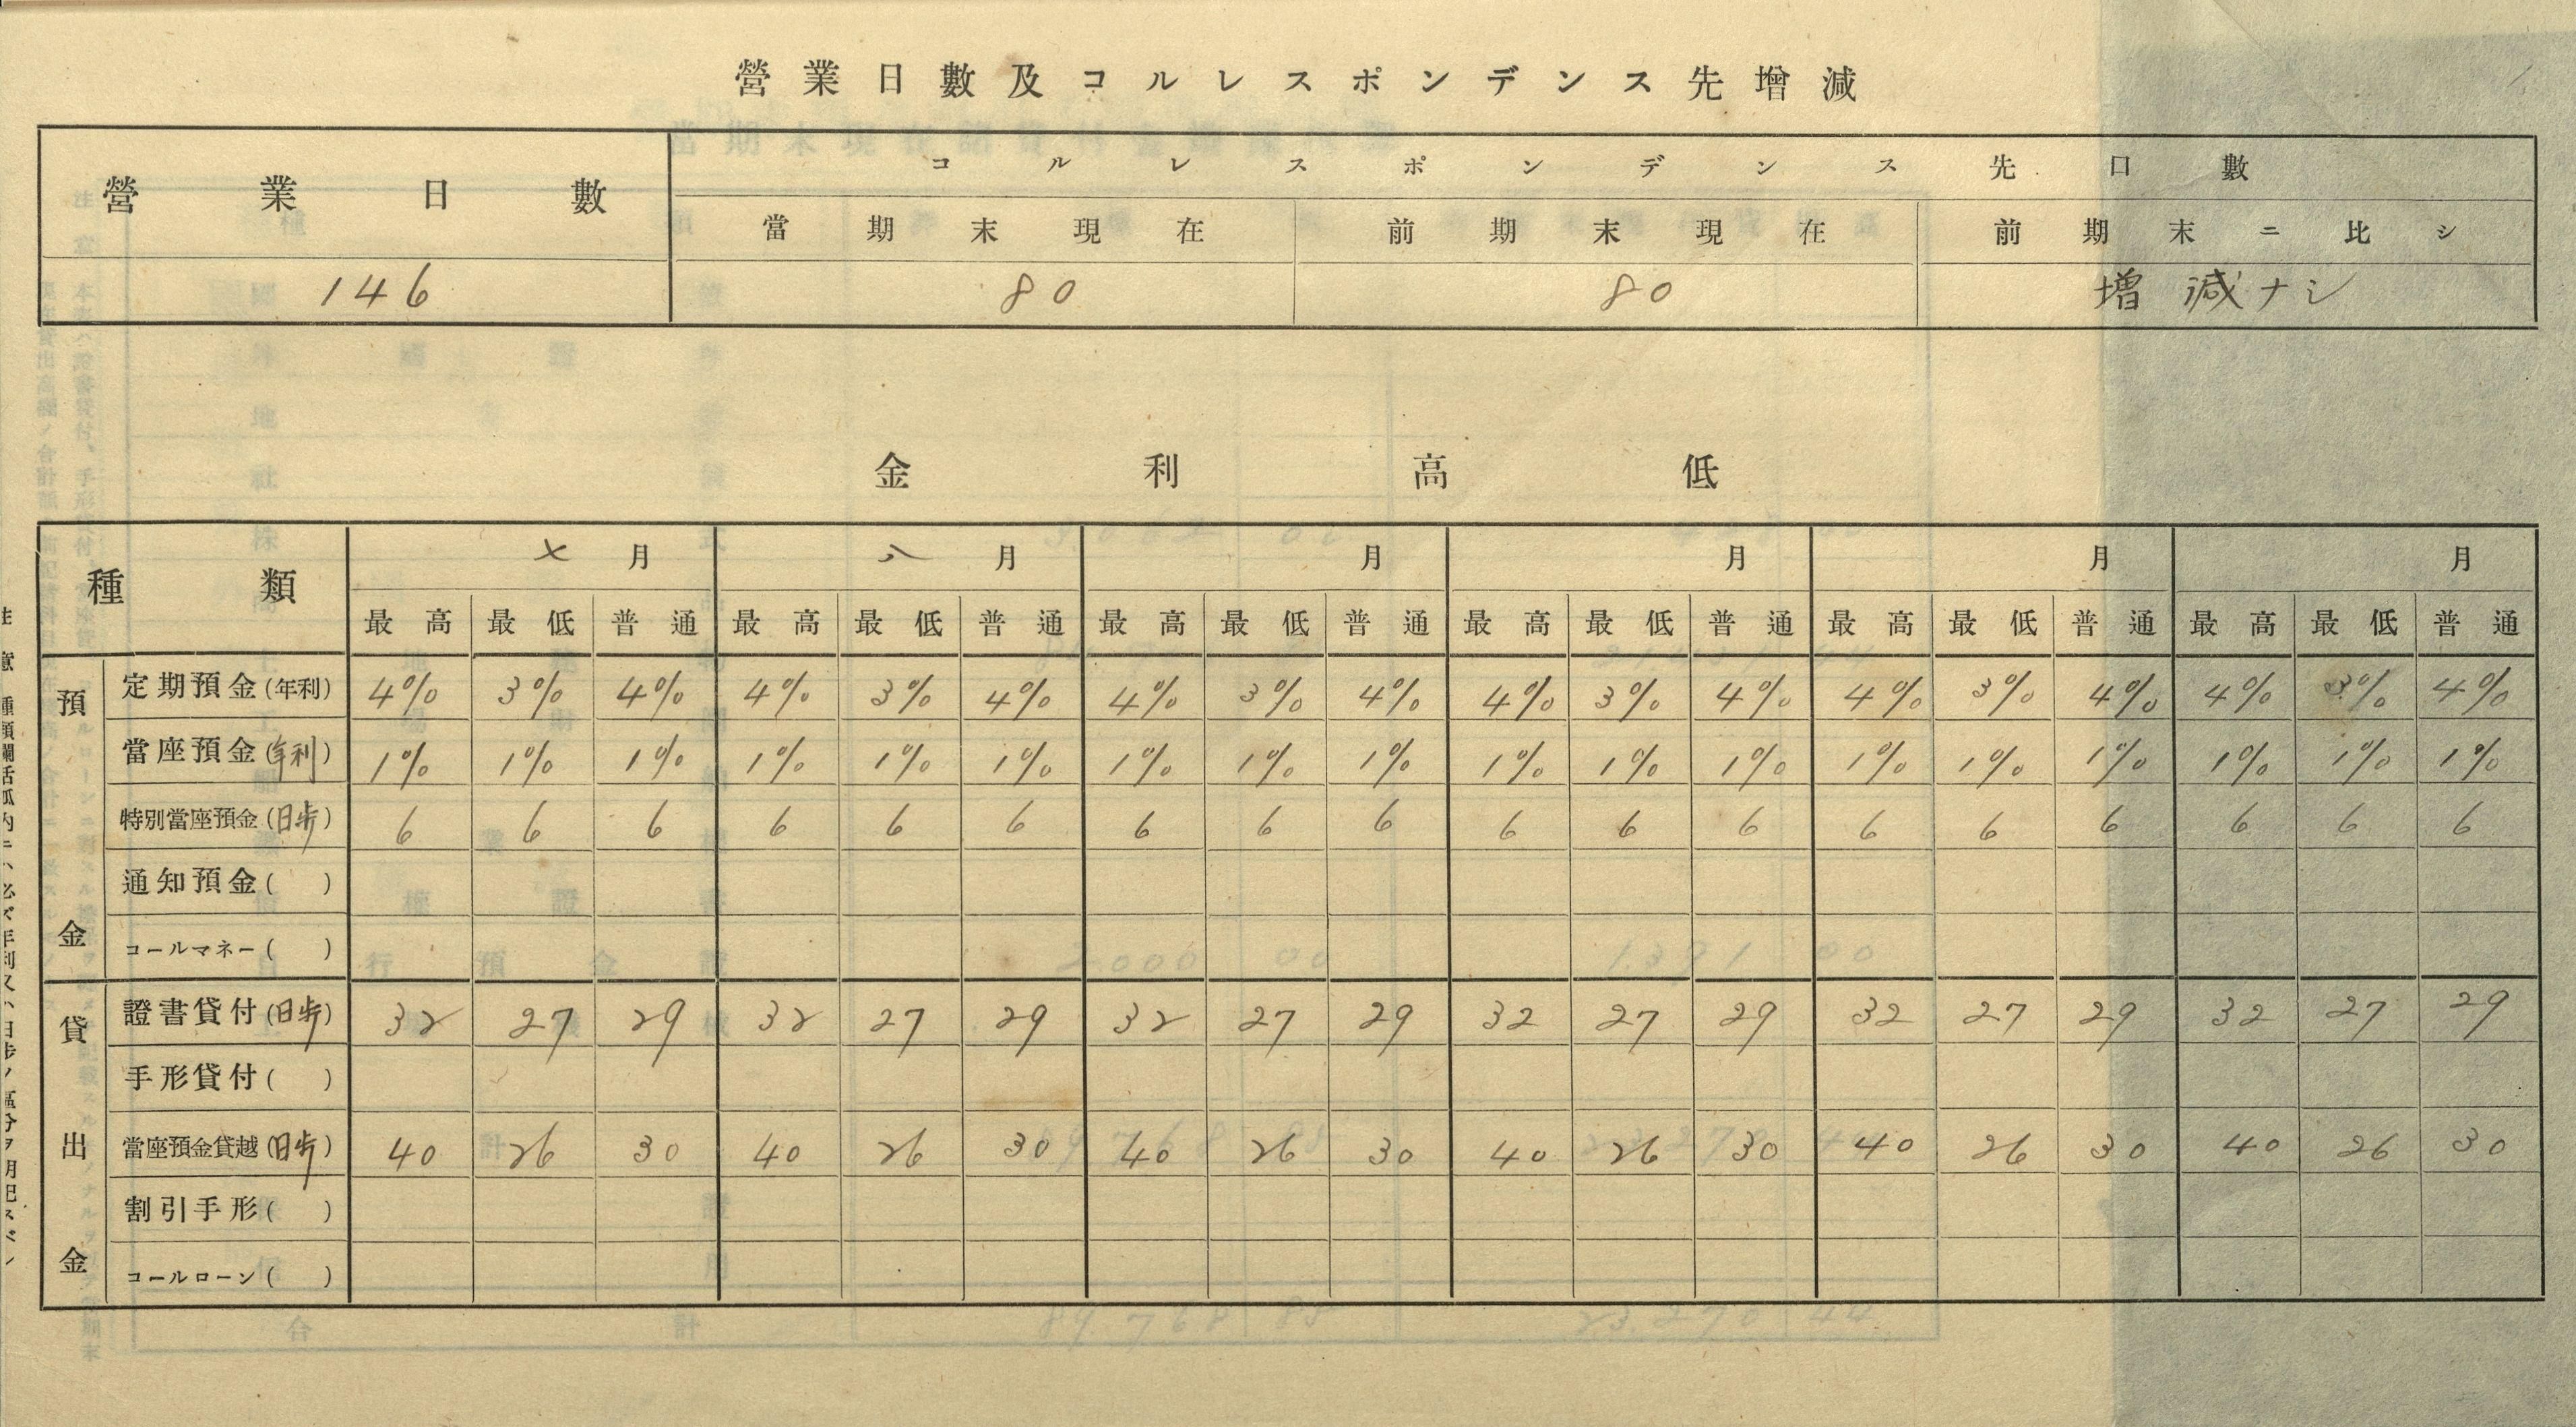 營業日數及コルレスポンデンス先增減
營業日數 コルレスポンデンス先口數
當期末現在 前期末現在 前期末ニ比シ
146 80 80 増減ナシ
金利高低
種類 七月 八月 月 月 月 月
最高 最低 普通 最高 最低 普通 最高 最低 普通 最高 最低 普通 最高 最低 普通 最高 最低 普通
預金
定期預金(年利) 4% 3% 4% 4% 3% 4% 4% 3% 4% 4% 3% 4% 4% 3% 4% 4% 3% 4%
當座預金(年利) 1% 1% 1% 1% 1% 1% 1% 1% 1% 1% 1% 1% 1% 1% 1% 1% 1% 1%
特別當座預金(日歩) 6 6 6 6 6 6 6 6 6 6 6 6 6 6 6 6 6 6
通知預金( )
コールマネー( )
貸出金
證書貸付(日歩) 32 27 29 32 27 29 32 27 29 32 27 29 32 27 29 32 27 29
手形貸付( )
當座預金貸越(日歩) 40 26 30 40 26 30 40 26 30 40 26 30 40 26 30 40 26 30
割引手形( )
コールローン( )